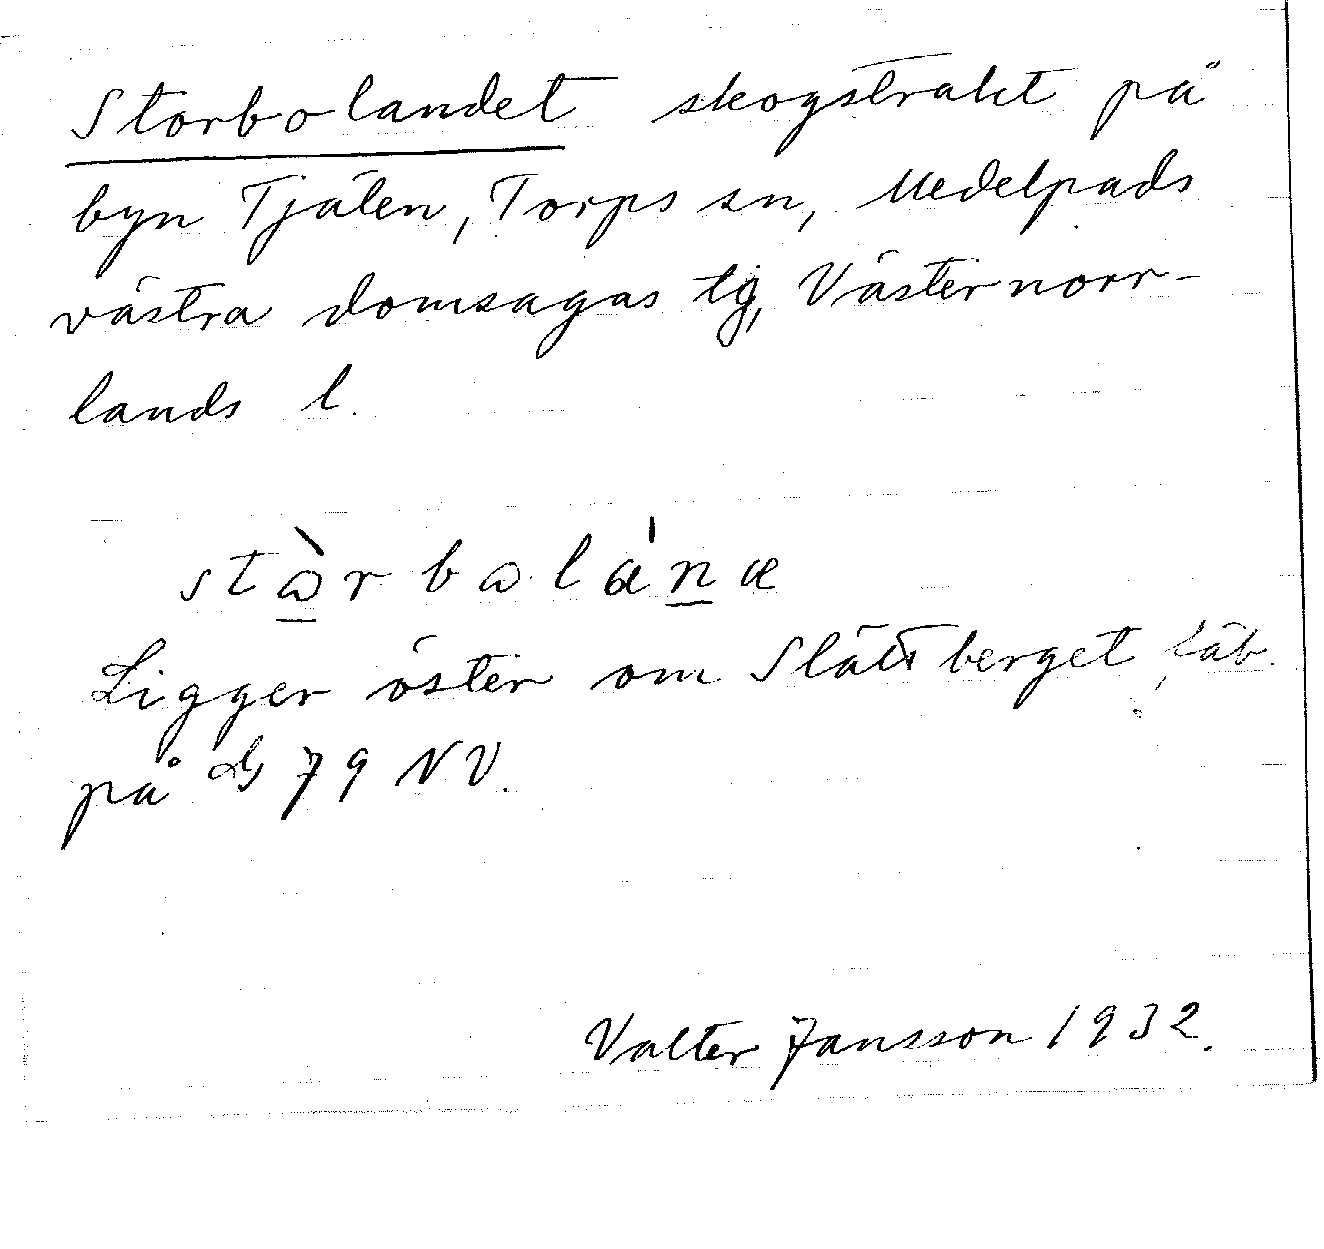 Storbolandet skogstrakt på
byn Tjälen, Torps sn, Medelpads
västra domsagas tg, Västernorr-
lands l.
stòrbolánæ
Ligger öster om Slättberget, fäb.
på G 79 NV.
Valter Jansson 1932.